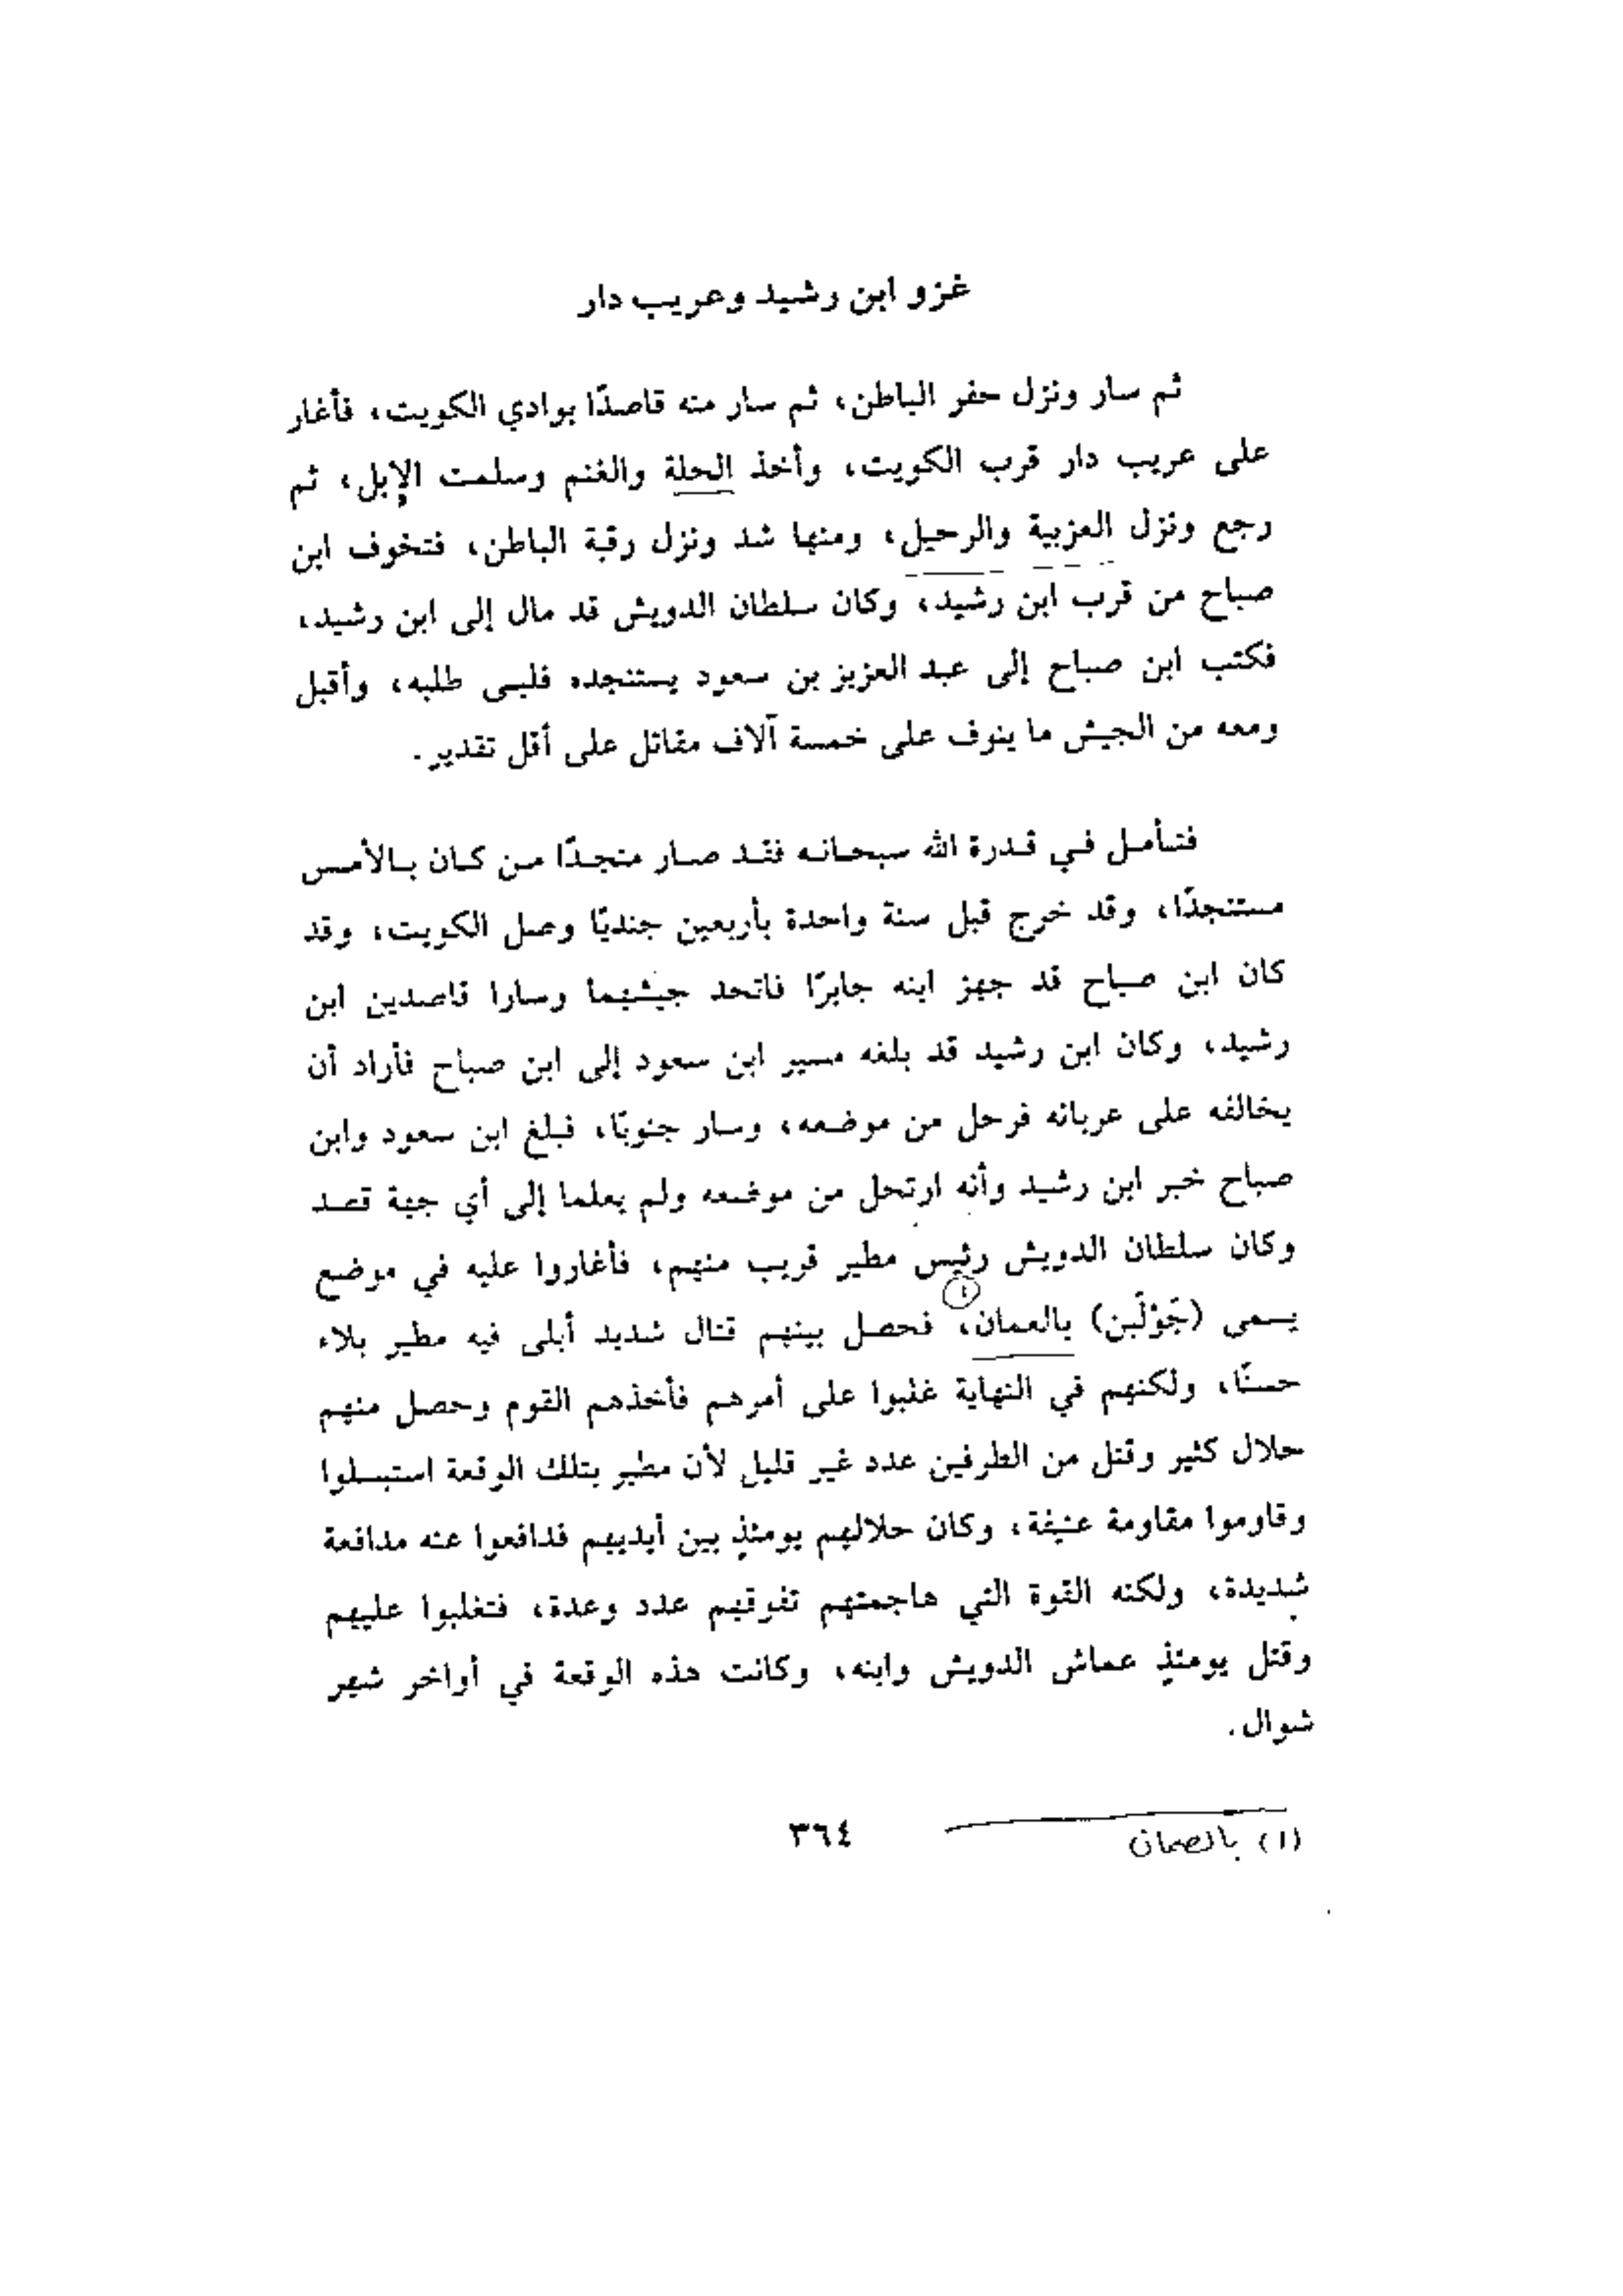 غزو ابن رشيد وعريب دار
ثم سار ونزل حفر الباطن، ثم سار منه قاصدًا بوادي الكويت، فأغار
على عريب دار قرب الكويت، وأخذ الحلة والغنم وسلمت الإبل، ثم
رجع ونزل العزبية والرحيل، ومنها شد ونزل رقبة الباطن، فتخوف ابن
صباح من قرب ابن رشيد، وكان سلطان الدويش قد مال إلى ابن رشيد،
فكتب ابن صباح إلى عبد العزيز بن سعود يستنجده فلبى طلبه، وأقبل
ومعه من الجيش ما ينوف على خمسة آلاف مقاتل على أقل تقدير.
فتأمل في قدرة الله سبحانه فقد صار منجدًا من كان بالأمس
مستنجدًا، وقد خرج قبل سنة واحدة بأربعين جنديًا وصل الكويت، وقد
كان ابن صباح قد جهز ابنه جابرًا فاتحد جيشهما وسارا قاصدين ابن
رشيد، وكان ابن رشيد قد بلغه مسير ابن سعود إلى ابن صباح فأراد أن
يخالفه على عربانه فرحل من موضعه، وسار جنوبًا، فبلغ ابن سعود وابن
صباح خبر ابن رشيد وأنه ارتحل من موضعه ولم يعلما إلى أي جهة قصد
وكان سلطان الدويش رئيس مطير قريب منهم، فأغاروا عليه في موضع
يسمى (جَوْلَبن) بالعمان(١)، فحصل بينهم قتال شديد أبلى فيه مطير بلاء
حسنًا، ولكنهم في النهاية غلبوا على أمرهم فأخذهم القوم وحصل منهم
حلال كثير وقتل من الطرفين عدد غير قليل لأن مطير بتلك الوقعة استبسلوا
وقاوموا مقاومة عنيفة، وكان حلالهم يومئذٍ بين أيديهم فدافعوا عنه مدافعة
شديدة، ولكنه القوة التي هاجمتهم تفوقهم عدد وعدة، فتغلبوا عليهم
وقتل يومئذٍ عماش الدويش وابنه، وكانت هذه الوقعة في أواخر شهر
شوال.
(١) بالصمان
٣٦٤